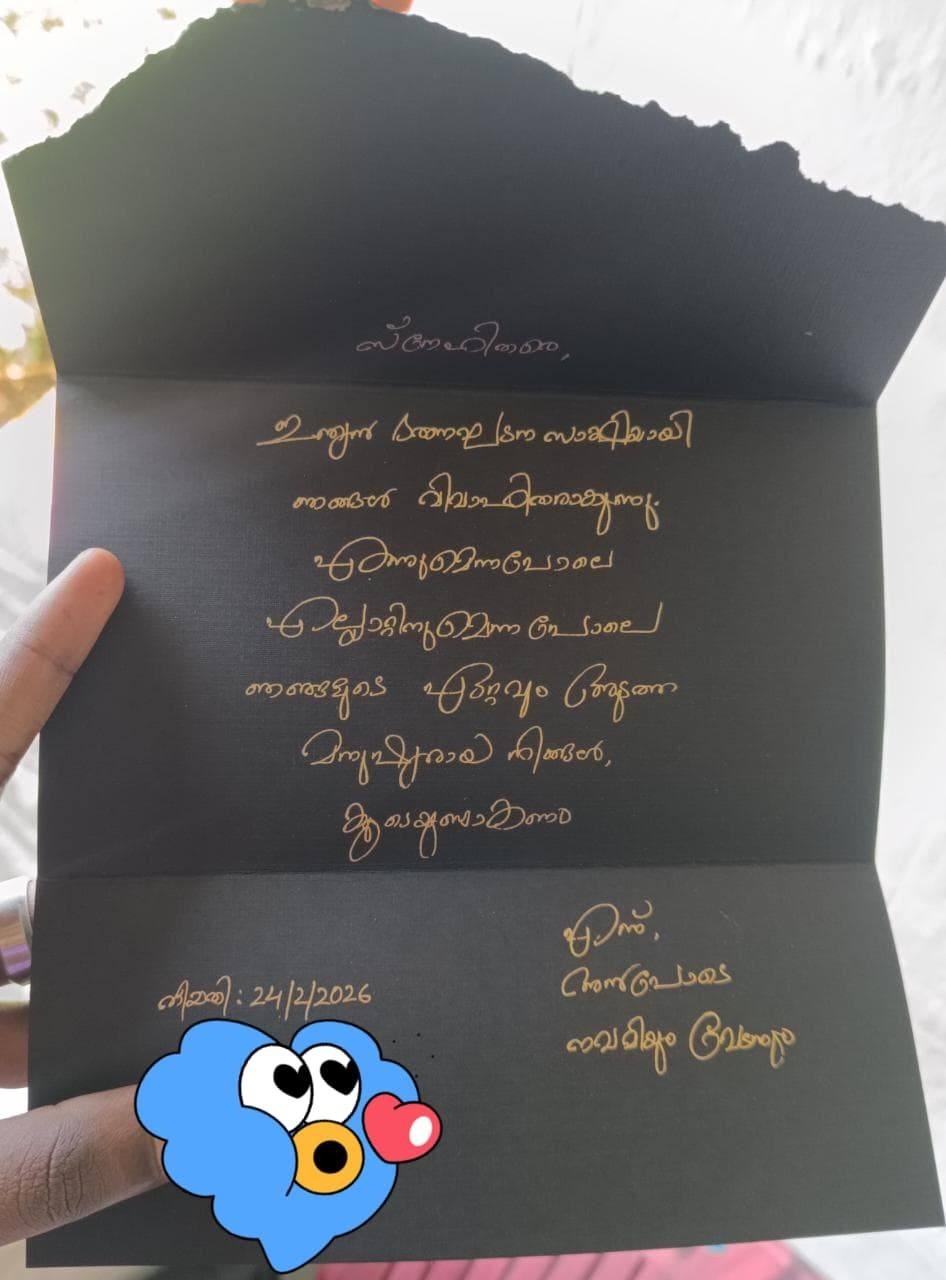 സ്നേഹിതരെ,
ഇന്ത്യൻ ഭരണഘടന സാക്ഷിയായി
ഞങ്ങൾ വിവാഹിതരാകുന്നു.
എന്നുമെന്നപോലെ
എല്ലാറ്റിനുമെന്ന പോലെ
ഞങ്ങളുടെ ഏറ്റവും അടുത്ത
മനുഷ്യരായ നിങ്ങൾ,
കൂടെയുണ്ടാകണം
എന്ന്,
അൻപോടെ
തിയതി : 24/2/2026
നവമിയും